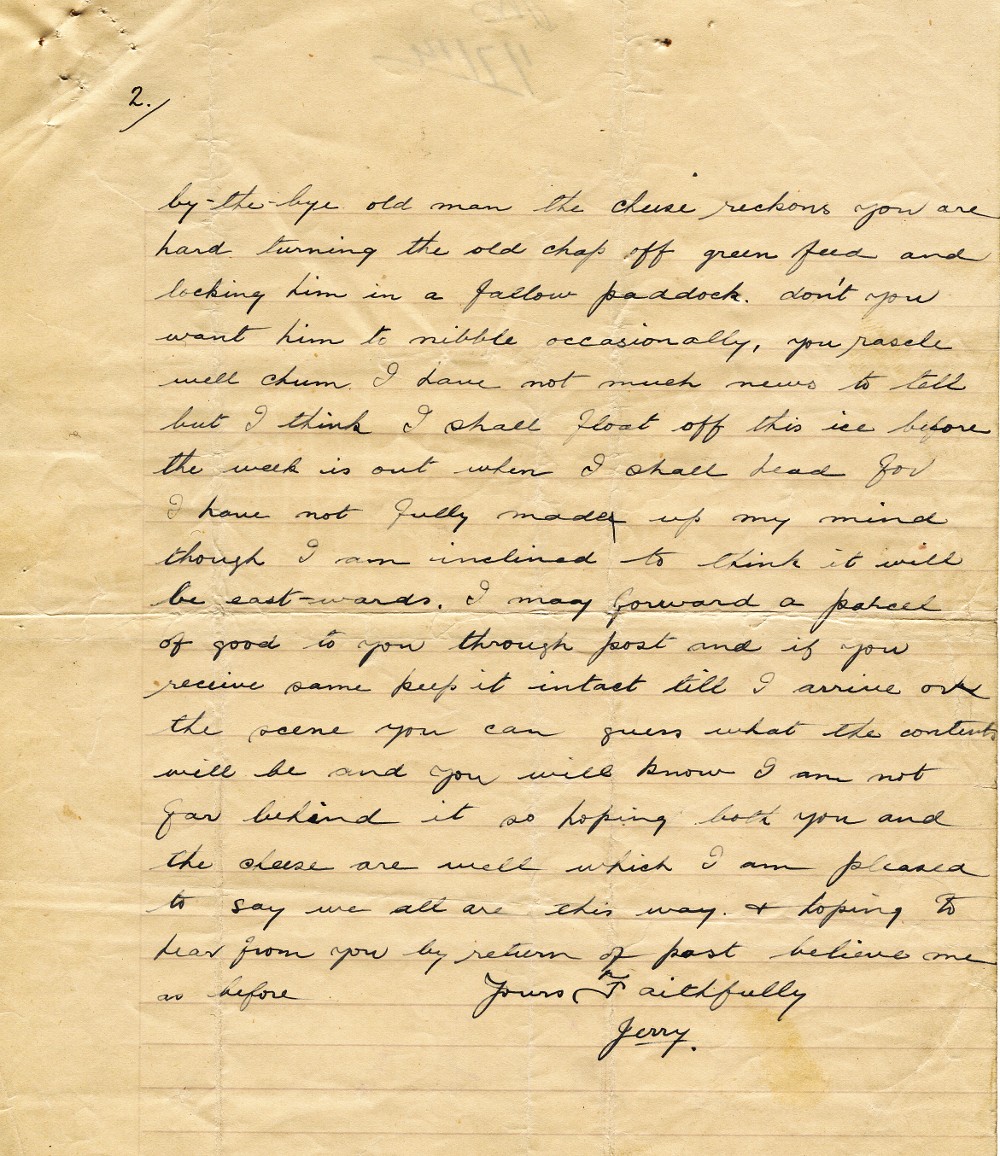 2./
by-the-bye old man the cheise reckons you are
hard turning the old chap off green feed and
locking him in a fallow paddock. don't you
want him to nibble occasionally, you rascle
well chum I have not much news to tell
but I think I shall float off this ice before
the week is out when I shall head for
I have not fully made up my mind
though I am inclined to think it will
be east-wards. I may forward a parcel
of good to you through post and if you
receive same keep it intact till I arrive on
the scene you can guess what the contents
will be and you will know I am not
far behind it so hoping both you and
the cheese are well which I am pleased
to say we all are this way. & hoping to
hear from you by return of post believe me
as before Yours Faithfully
Jerry.